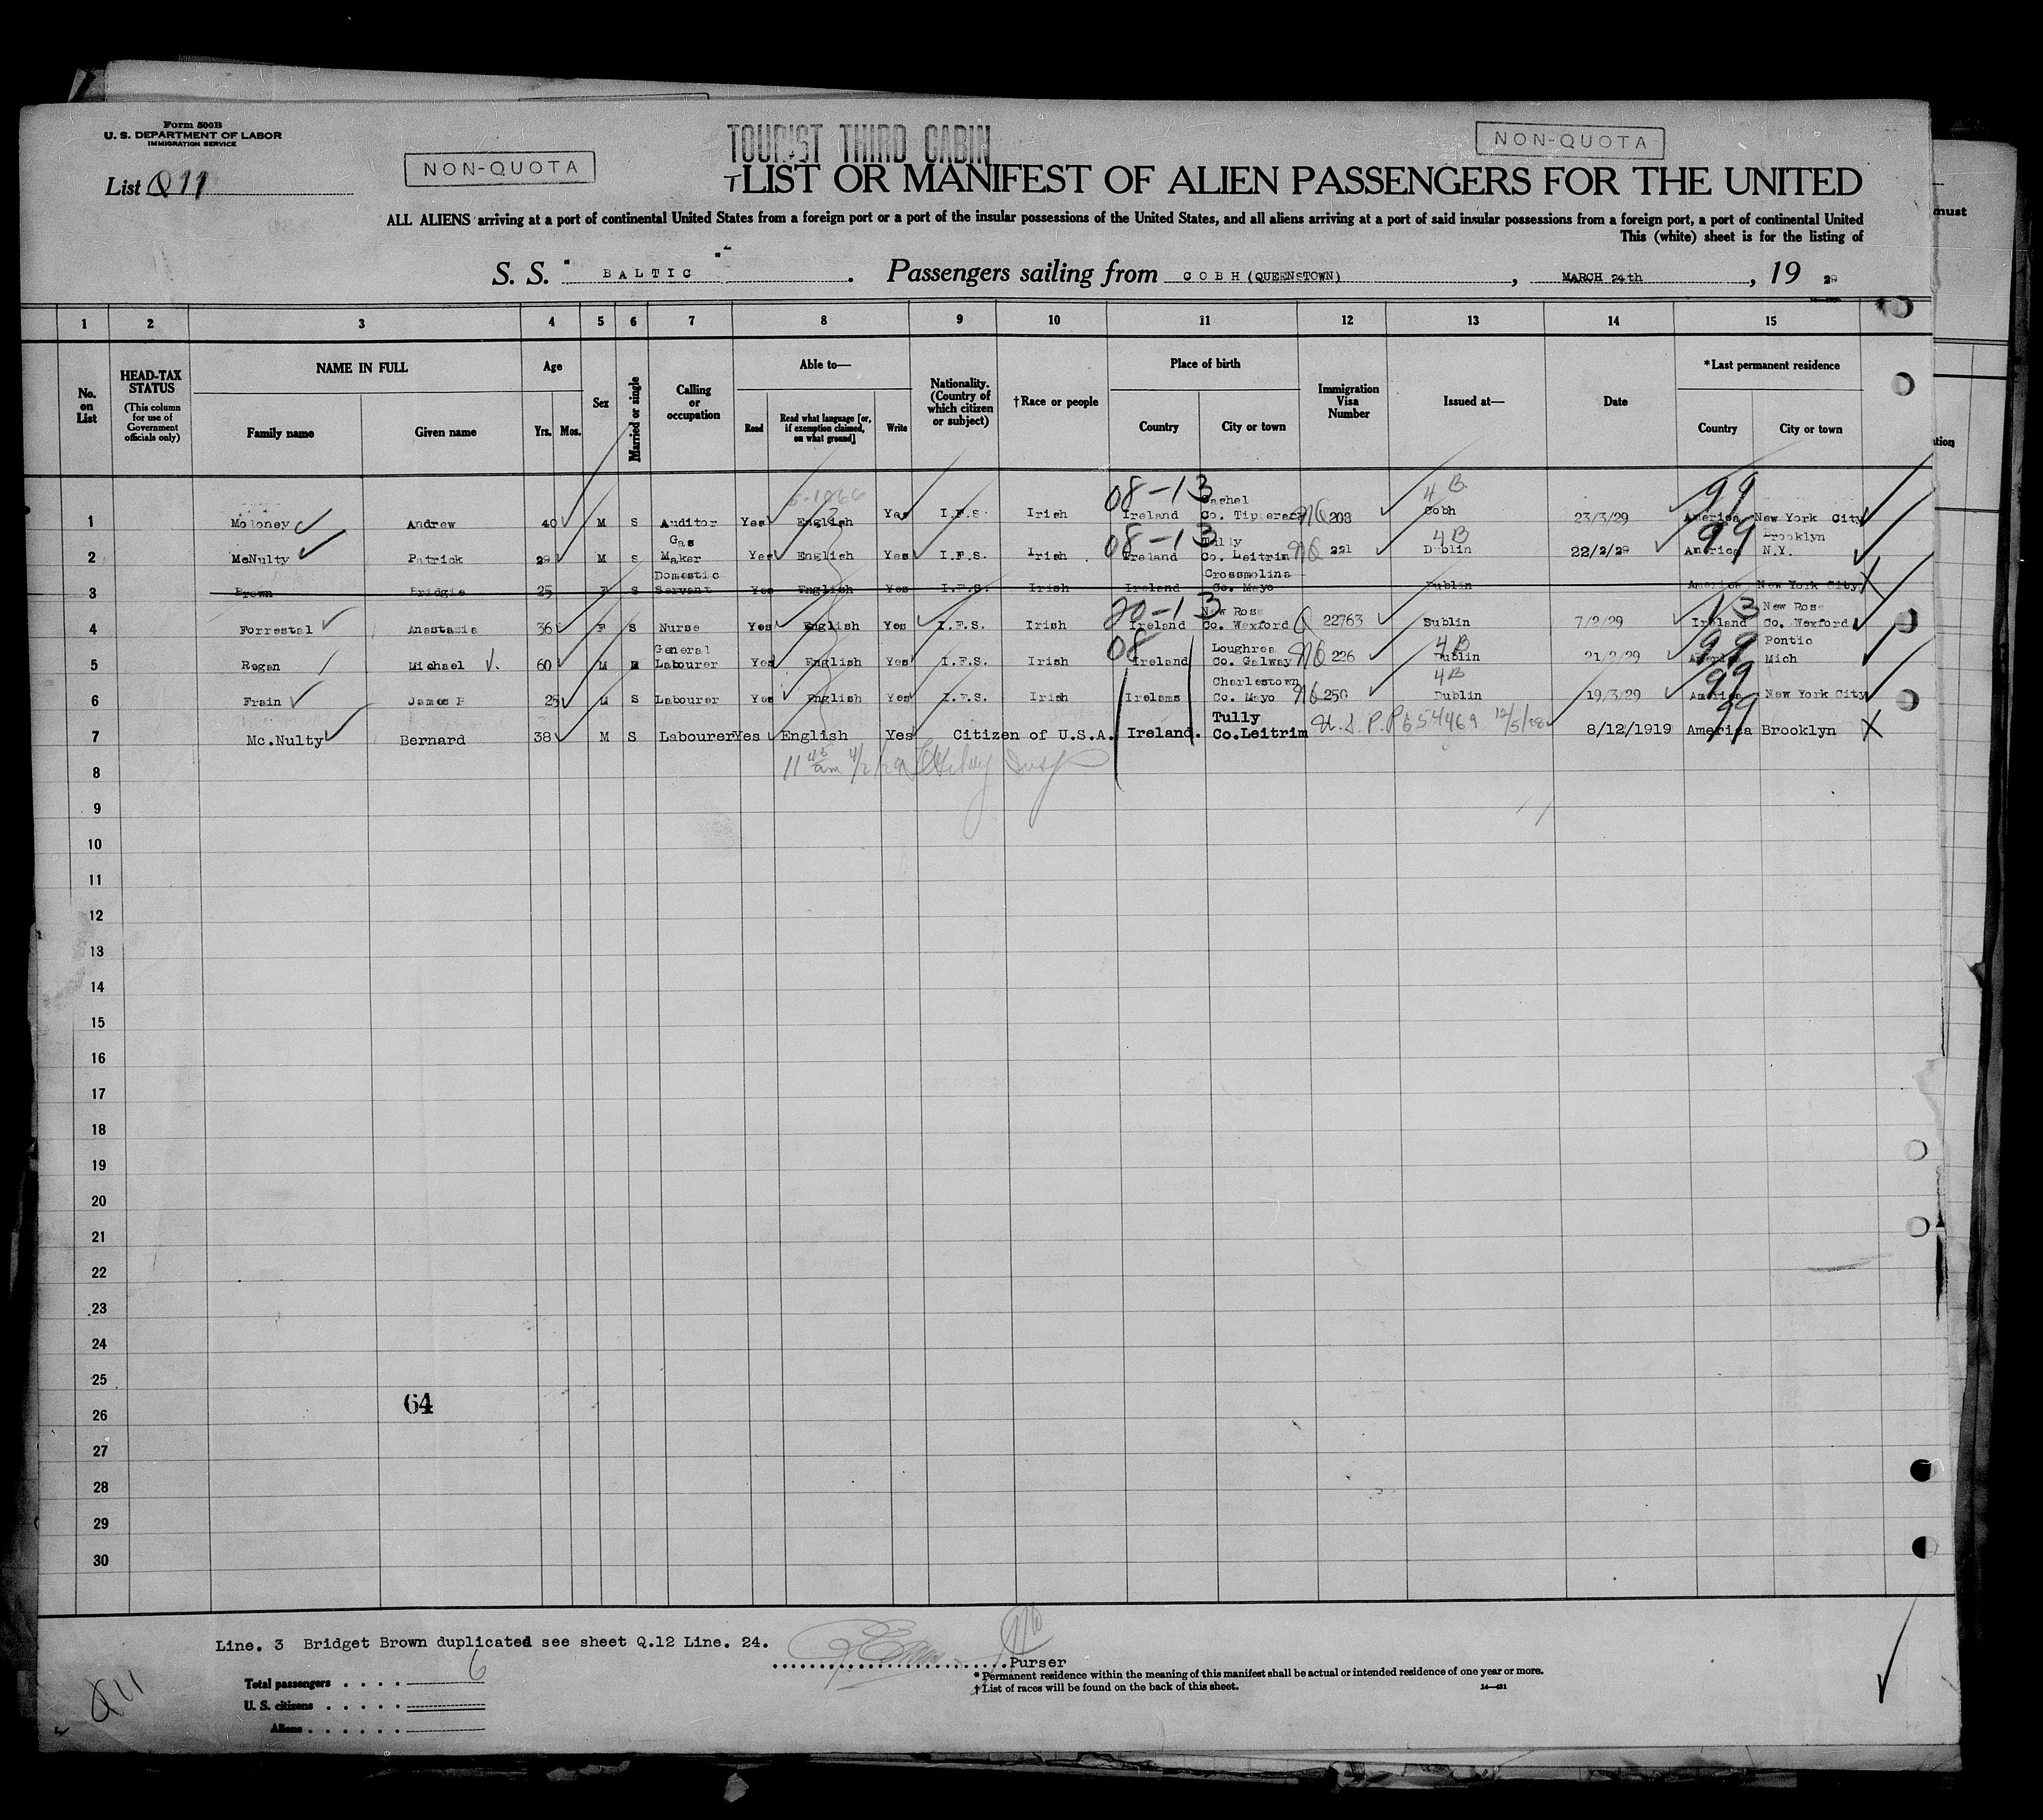 Form 500B
U. S. DEPARTMENT OF LABOR
IMMIGRATION SERVICE
List Q 11
NON-QUOTA
TOURIST THIRD CABIN
NON-QUOTA
LIST OR MANIFEST OF ALIEN PASSENGERS FOR THE UNITED
ALL ALIENS arriving at a port of continental United States from a foreign port or a port of the insular possessions of the United States, and all aliens arriving at a port of said insular possessions from a foreign port, a port of continental United
This (white) sheet is for the listing of
S. S. " BALTIC ". Passengers sailing from COBH (QUEENSTOWN), MARCH 24th, 19 29
1 2 3 4 5 6 7 8 9 10 11 12 13 14 15
No. on List
HEAD-TAX STATUS (This column for use of Government officials only)
NAME IN FULL
Family name Given name
Age
Yrs. Mos.
Sex
Married or single
Calling or occupation
Able to—
Read
Read what language [or, if exemption claimed, on what ground]
Write
Nationality. (Country of which citizen or subject)
†Race or people
Place of birth
Country City or town
Immigration Visa Number
Issued at—
Date
*Last permanent residence
Country City or town
1 Moloney Andrew 40 M S Auditor Yes English Yes I.F.S. Irish 08-13 Ireland Cashel Co. Tipperary 208 4 B Cobh 23/3/29 99 America New York City
2 McNulty Patrick 29 M S Gas Maker Yes English Yes I.F.S. Irish 08-13 Ireland Tully Co. Leitrim 221 4B Dublin 22/2/29 99 America Brooklyn N.Y.
3 Brown Bridgie 25 F S Domestic Servant Yes English Yes I.F.S. Irish Ireland Crossmolina Co. Mayo Dublin America New York City X
4 Forrestal Anastasia 36 F S Nurse Yes English Yes I.F.S. Irish 20-13 Ireland New Ross Co. Wexford Q 22763 Sublin 7/2/29 13 Ireland New Ross Co. Wexford
5 Regan Michael 60 M General Labourer Yes English Yes I.F.S. Irish 08 Ireland Loughrea Co. Galway 226 4B Dublin 21/2/29 99 America Pontic Mich
6 Frain James P 25 M S Labourer Yes English Yes I.F.S. Irish Irelams Charlestown Co. Mayo 250 4B Dublin 19/3/29 99 America New York City
7 Mc.Nulty Bernard 38 M S Labourer Yes English Yes Citizen of U.S.A. Ireland. Tully Co.Leitrim U.S. P.P 654469 12/5/28 8/12/1919 99 America Brooklyn X
8
9
10
11
12
13
14
15
16
17
18
19
20
21
22
23
24
25
64
26
27
28
29
30
Line. 3 Bridget Brown duplicated see sheet Q.12 Line. 24.
Purser
Total passengers 6
U. S. citizens
Aliens
Q11
* Permanent residence within the meaning of this manifest shall be actual or intended residence of one year or more.
† List of races will be found on the back of this sheet.
must